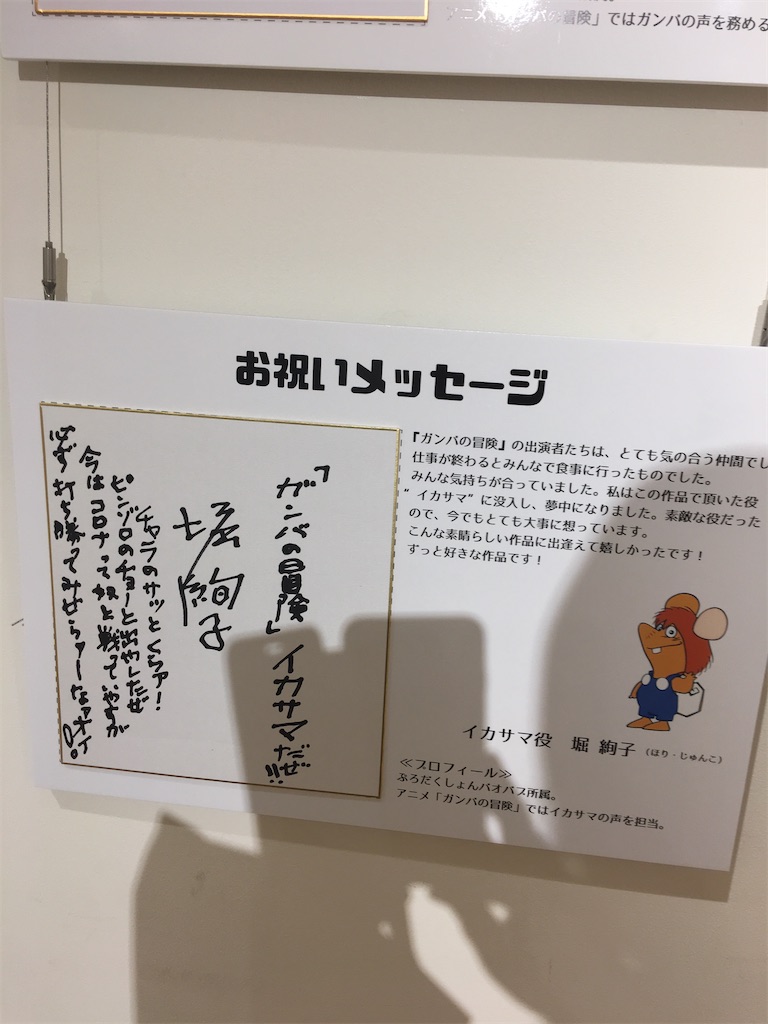 アニメ「ガンバの冒険」ではガンバの声を務める
お祝いメッセージ
「ガンバの冒険」イカサマだぜ!!
堀絢子
チャラのサッとくらァ!
ピンゾロのチョーと出やしたぜ
今はコロナって奴と戦っていやすが
必ず打ち勝ってみせらァーなァオイ
『ガンバの冒険』の出演者たちは、とても気の合う仲間でし
仕事が終わるとみんなで食事に行ったものでした。
みんな気持ちが合っていました。私はこの作品で頂いた役
“イカサマ”に没入し、夢中になりました。素敵な役だった
ので、今でもとても大事に想っています。
こんな素晴らしい作品に出逢えて嬉しかったです!
ずっと好きな作品です!
イカサマ役 堀 絢子(ほり・じゅんこ)
≪プロフィール≫
ぷろだくしょんバオバブ所属。
アニメ「ガンバの冒険」ではイカサマの声を担当。